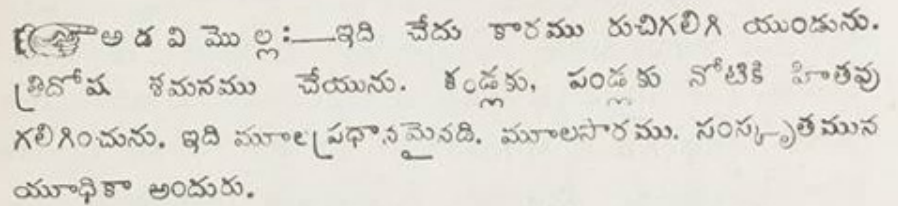 అ డ వి మొ ల్ల :—ఇది చేదు కారము రుచిగలిగి యుండును.
త్రిదోష శమనము చేయును. కండ్లకు, పండ్లకు నోటికి హితవు
గలిగించును. ఇది మూల ప్రధానమైనది. మూలసారము. సంస్కృతమున
యూధికా అందురు.